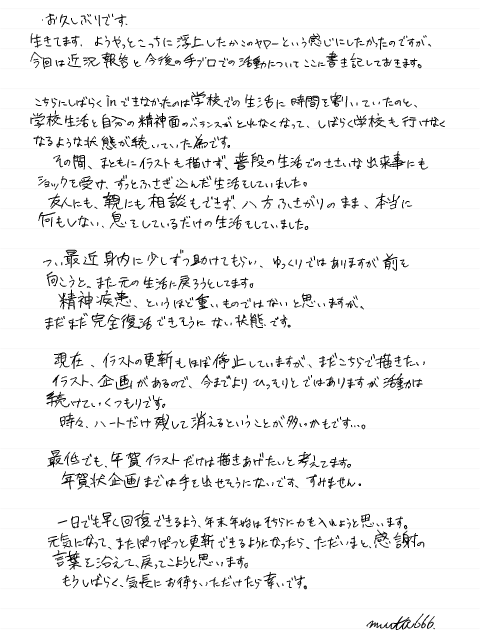 お久しぶりです.
生きてます. ようやっとこっちに浮上したかこのヤローという感じにしたかったのですが、
今回は近況報告と今後の手ブロでの活動についてここに書き記しておきます。
こちらにしばらくinできなかったのは学校での生活に時間を割いていたのと、
学校生活と自分の精神面のバランスがとれなくなって、しばらく学校も行けなく
なるような状態が続いていた為です。
その間、まともにイラストも描けず、普段の生活でのささいな出来事にも
ショックを受け、ずっとふさぎ込んだ生活をしていました。
友人にも、親にも相談もできず、八方ふさがりのまま、本当に
何もしない、息をしているだけの生活をしていました。
つい最近身内に少しずつ助けてもらい、ゆっくりではありますが前を
向こうと、また元の生活に戻ろうとしてます。
精神疾患、というほど重いものではないと思いますが、
まだまだ完全復活できそうにない状態です。
現在、イラストの更新もほぼ停止していますが、まだこちらで描きたい
イラスト、企画があるので、今までよりひっそりとではありますが活動は
続けていくつもりです。
時々、ハートだけ残して消えるということが多いかもです…。
最低でも、年賀イラストだけは描きあげたいと考えてます。
年賀状企画までは手を出せそうにないです、すみません.
一日でも早く回復できるよう、年末年始はそちらに力を入れようと思います。
元気になって、またぽつぽつと更新できるようになったら、ただいまと、感謝の
言葉を沿えて、戻ってこようと思います。
もうしばらく、気長にお待ちいただけたら幸いです。